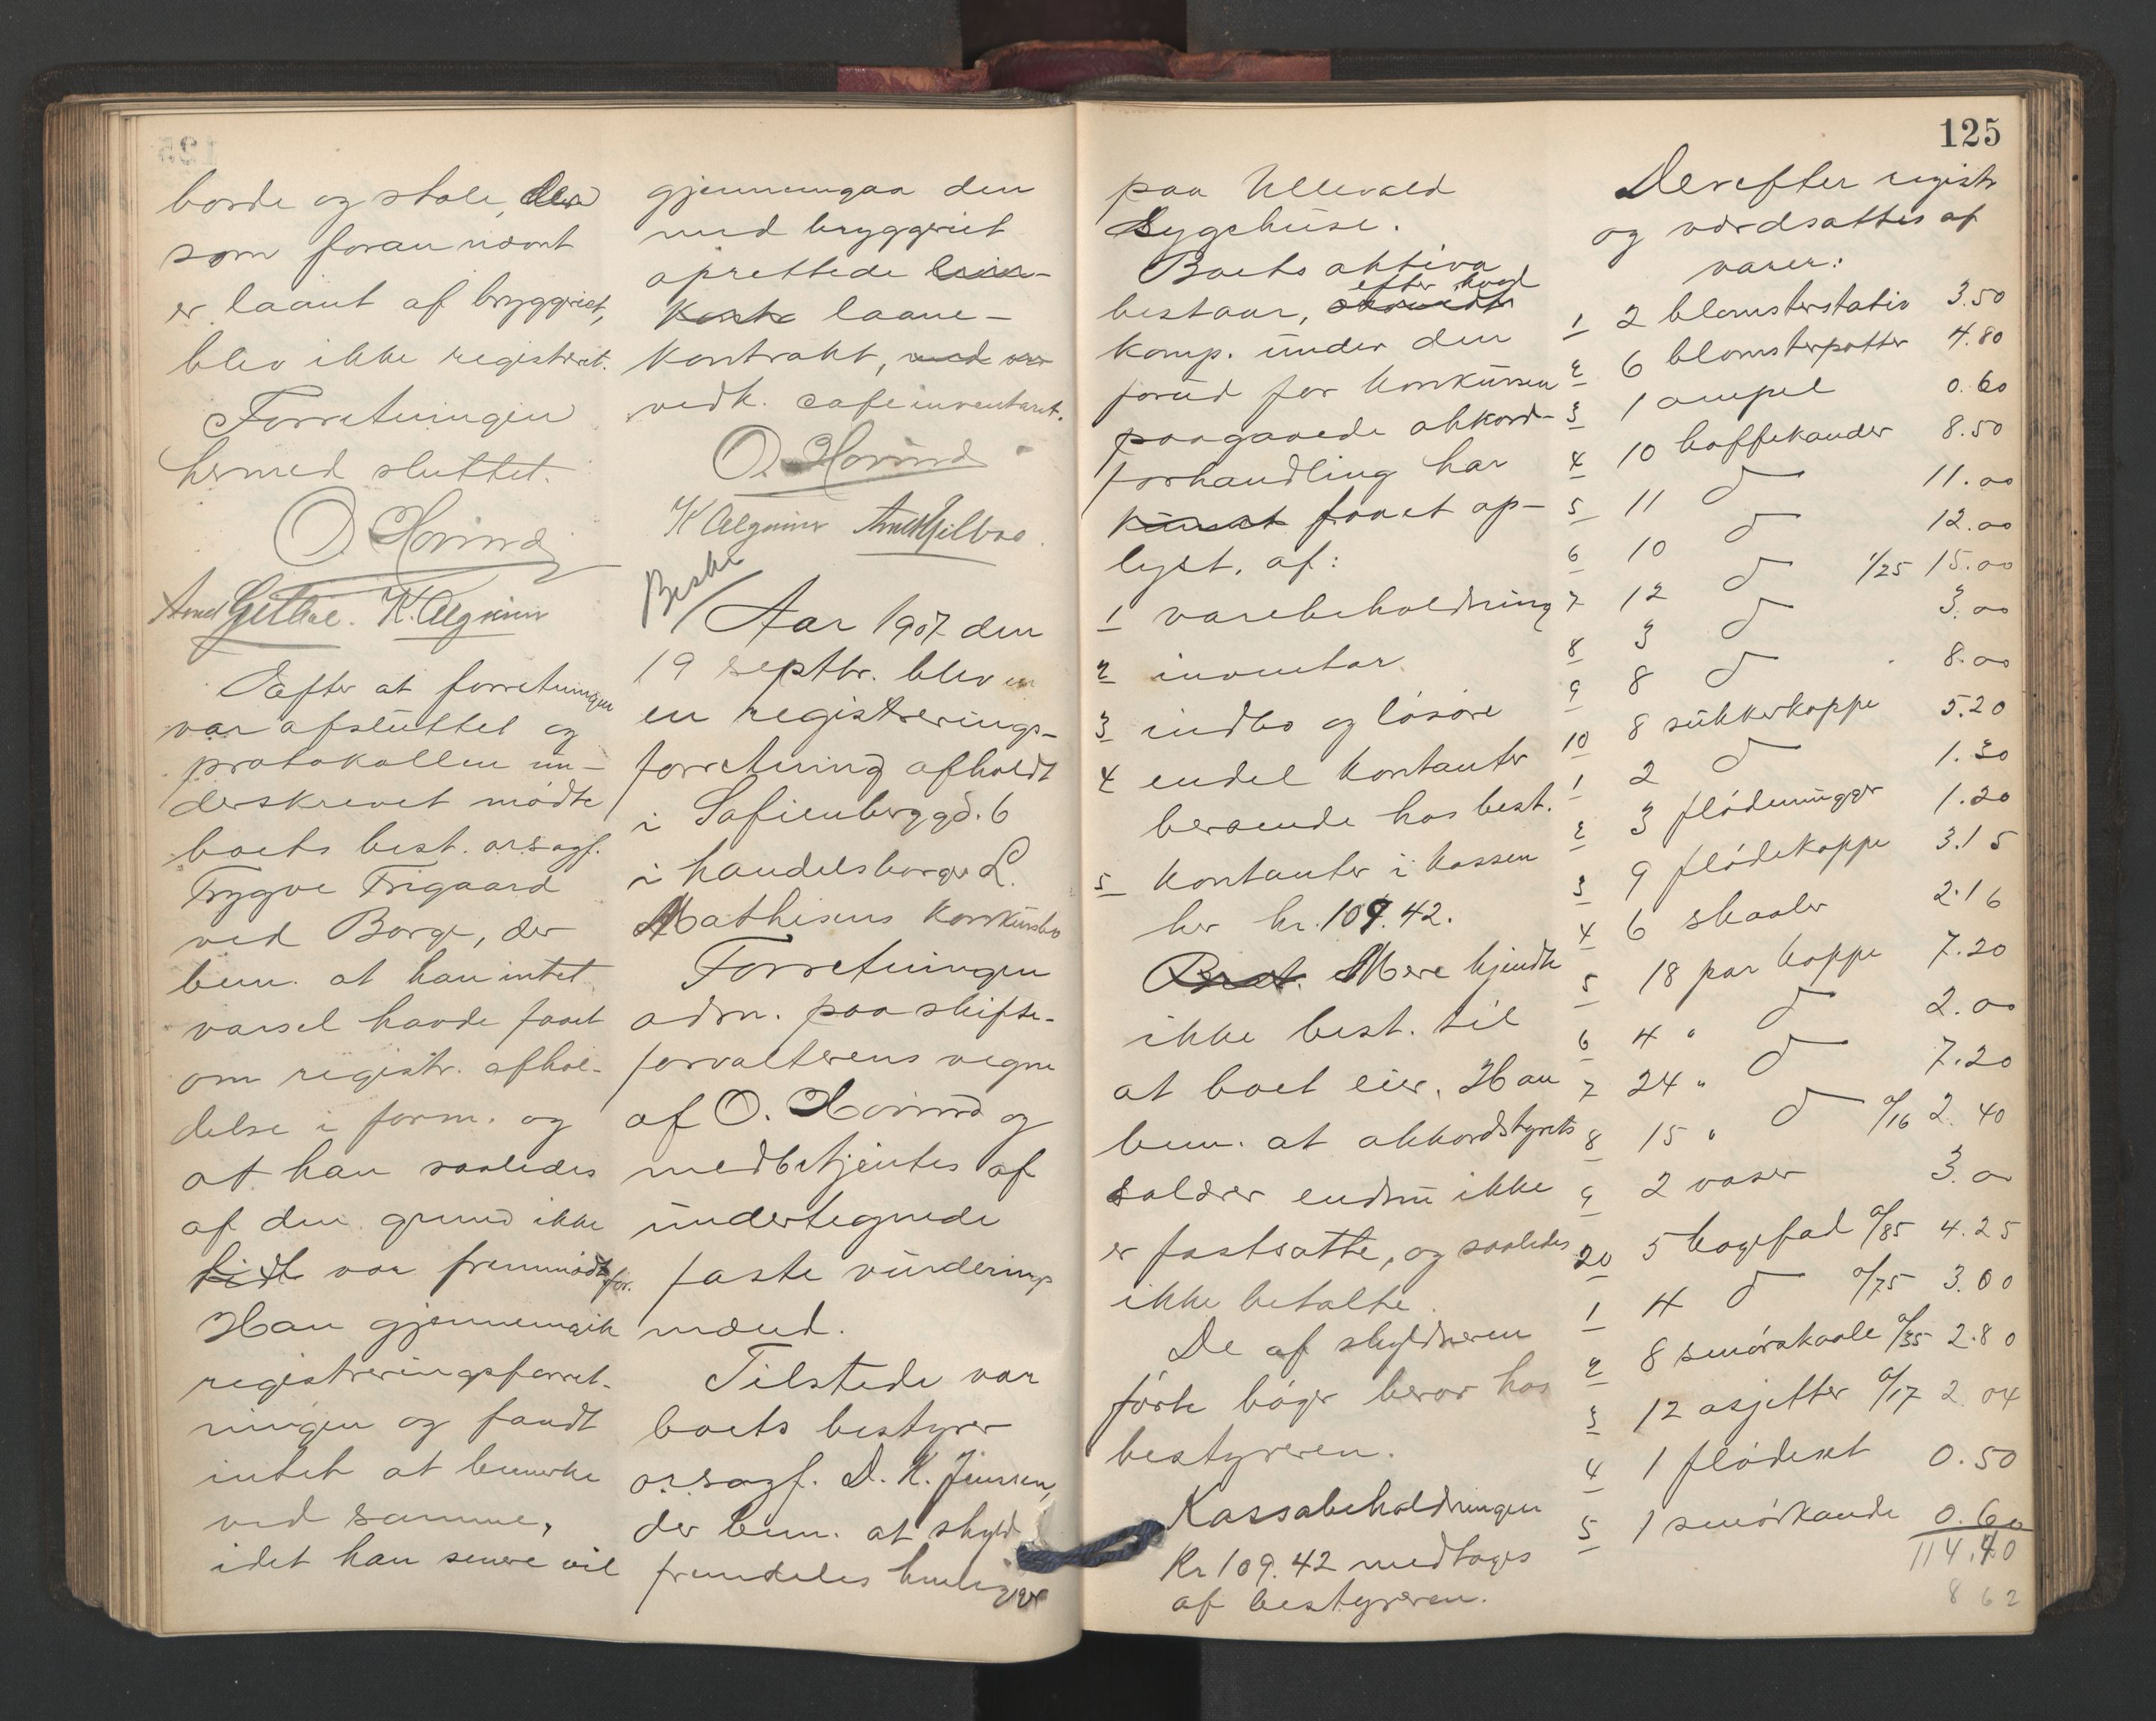 borde og stole,
som foran nævnt
er laant af bryggeriet,
blev ikke registreret.
Forretningen
hermed sluttet.
O. Hovind
K. Algrim
Efter at forretningen
var afsluttet og
protokollen un-
derskrevet mødte
boets best. orsagf.
Trygve Frigaard
ved Borge, der
bem. at han intet
varsel havde faaet
om registr. afhol-
delse i form. og
at han saaledes
af den grund ikke
var fremmødt før.
Han gjennemgik
registreringsforret-
ningen og fandt
intet at bemerke
ved samme,
idet han senere vil
gjennemgaa den
med bryggeriet
oprettede
laane-
kontrakt,
vedk. cafeinventaret.
O. Hovind
K Algrim
Beskr
Aar 1907 den
19 septbr. blev
en registrerings-
forretning afholdt
i Sofienberggd. 6
i handelsborger L.
Mathisens konkursbo
Forretningen
adm. paa skifte-
forvalterens vegne
af O. Hovind og
medbetjentes af
undertegnede
faste vurderings
mænd.
Tilstede var
boets bestyrer
orsagf. D. K. Jensen,
der bem. at skyld
fremdeles
125
paa Ullevold
Sygehuse.
Boets aktiva
efter
bestaar,
komp. under den
forud for konkursen
paagaaede akkord-
forhandling har
faaet op-
lyst, af:
1 varebeholdning
2 inventar
3 indbo og løsøre
4 endel kontanter
beroende hos best.
5 kontanter i kassen
her kr. 109.42.
Mere kjendte
ikke best. til
at boet eier. Han
bem. at akkordstyrets
salærer endnu ikke
er fastsatte, og saaledes
ikke betalte.
De af skyldneren
førte bøger beror hos
bestyreren.
Kassabeholdningen
Kr 109.42 medtages
af bestyreren.
Derefter registr
og værdsattes af
varer:
1 2 blomsterstativ 3.50
2 6 blomsterpotter 4.80
3 1 ampel 0.60
4 10 kaffekander 8.50
5 11 d 11.00
6 10 d 12.00
7 12 d 1/25 15.00
8 3 d 3.00
9 8 d 8.00
10 8 sukkerkoppe 5.20
1 2 d 1.30
2 3 flødemugger 1.20
3 9 flødekoppe 3.15
4 6 skaaler 2.16
5 18 par koppe 7.20
6 4 " d 2.00
7 24 " d 7.20
8 15 " d a/16 2.40
9 2 vaser 3.00
20 5 kagefad a/85 4.25
1 4 d a/75 3.00
2 8 smørskaale a/35 2.80
3 12 asjetter a/17 2.04
4 1 flødeset 0.50
5 1 smørkande 0.60
114.40
862